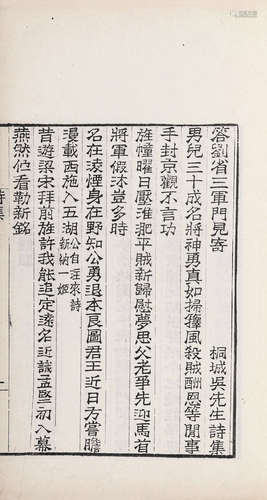 答劉省三軍門見寄
桐城吳先生詩集
男兒三十成名將神勇真如掃籜風殺賊酬恩等閒事
手封京觀不言功
旌幢曜日壓淮肥平賊新歸慰夢思父老爭先迎馬首
將軍假沐豈多時
名在淩煙身在野知公勇退本良圖君王近日方嘗膽
漫載西施入五湖
公自 來詩
新納一姬
昔遊梁宋拜前旌許我能追定遠名近識孟堅初入幕
燕然佗看勒新銘